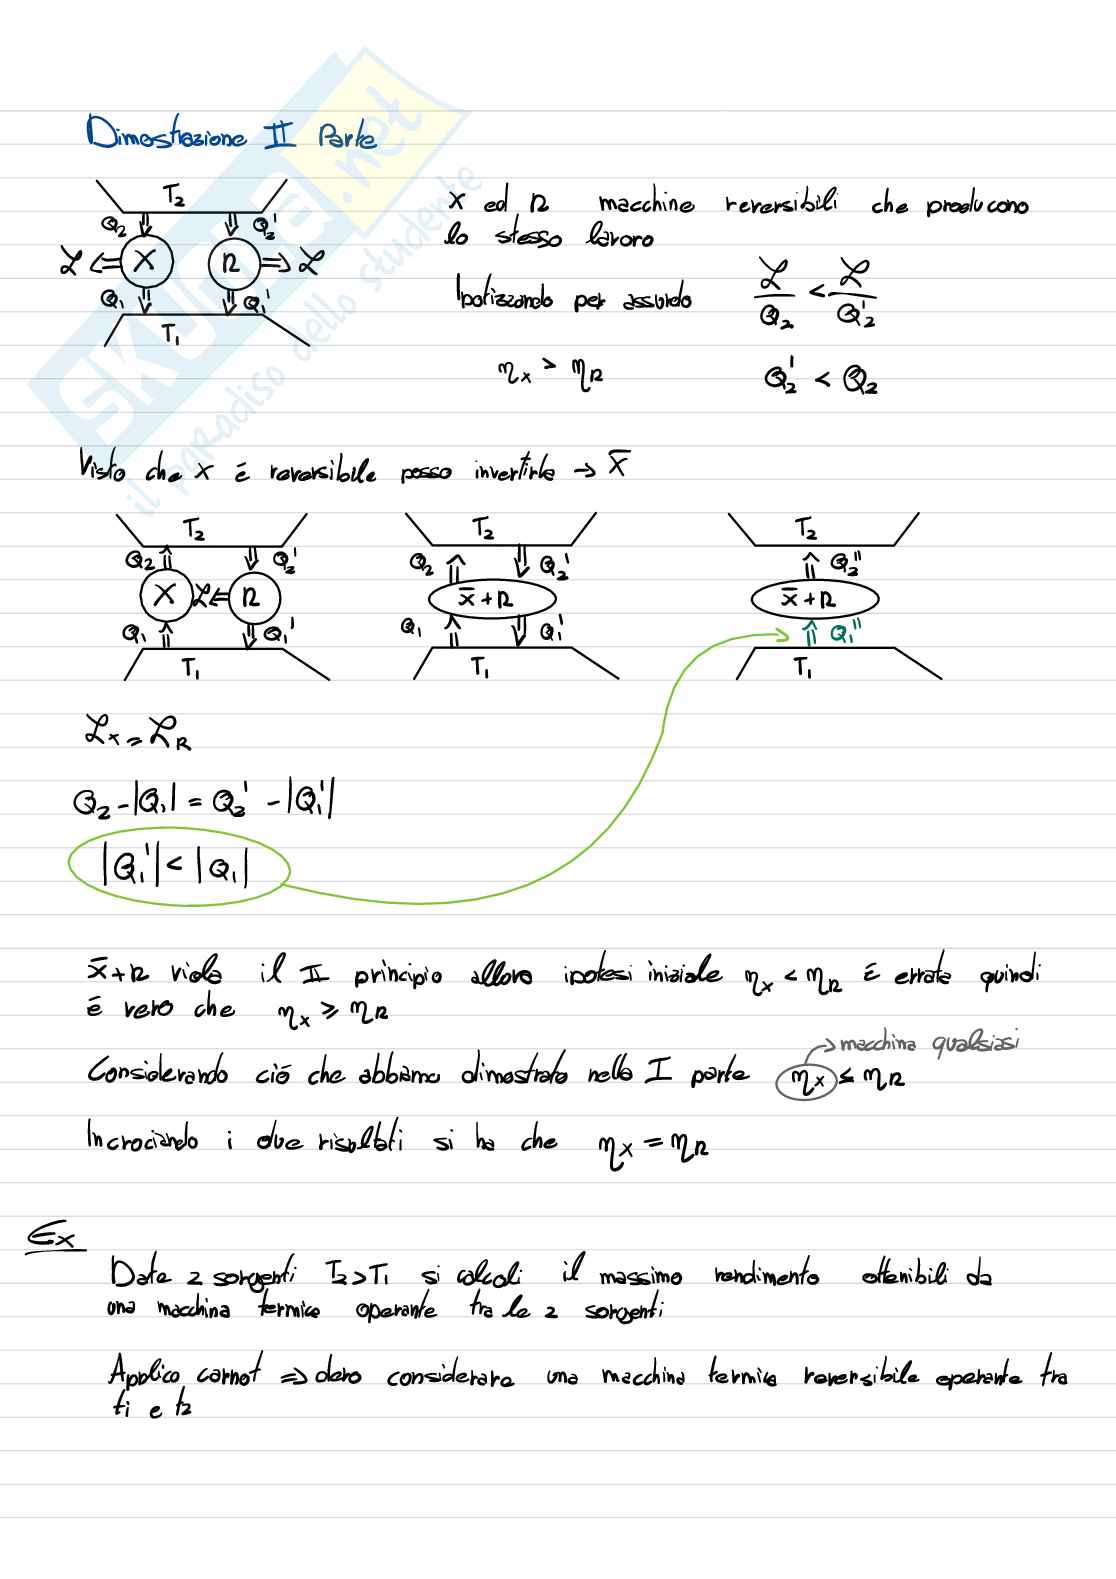 Dimostrazione II Parte
T₂
Q₂ Q₂'
ℒ X R ℒ
Q₁ Q₁'
T₁
X ed R macchine reversibili che producono
lo stesso lavoro
Ipotizzando per assurdo ℒ/Q₂ < ℒ/Q₂'
ηx > ηR Q₂' < Q₂
Visto che x é reversibile posso invertirla → X̄
T₂ T₂ T₂
Q₂ Q₂' Q₂ Q₂' Q₂''
X ℒ R X̄+R X̄+R
Q₁ Q₁' Q₁ Q₁' Q₁''
T₁ T₁ T₁
ℒx = ℒR
Q₂ - |Q₁| = Q₂' - |Q₁'|
|Q₁'| < |Q₁|
X̄+R viola il II principio allora ipotesi iniziale ηx < ηR é errata quindi
é vero che ηx ⩾ ηR
→ macchina qualsiasi
Considerando ció che abbiamo dimostrato nella I parte ηx ≤ ηR
Incrociando i due risultati si ha che ηx = ηR
Ex
Date 2 sorgenti T₂>T₁ si calcoli il massimo rendimento ottenibili da
una macchina termica operante tra le 2 sorgenti
Applico carnot ⇒ devo considerare una macchina termica reversibile operante tra
t₁ e t₂
SKUOLA.net
il paradiso dello studente